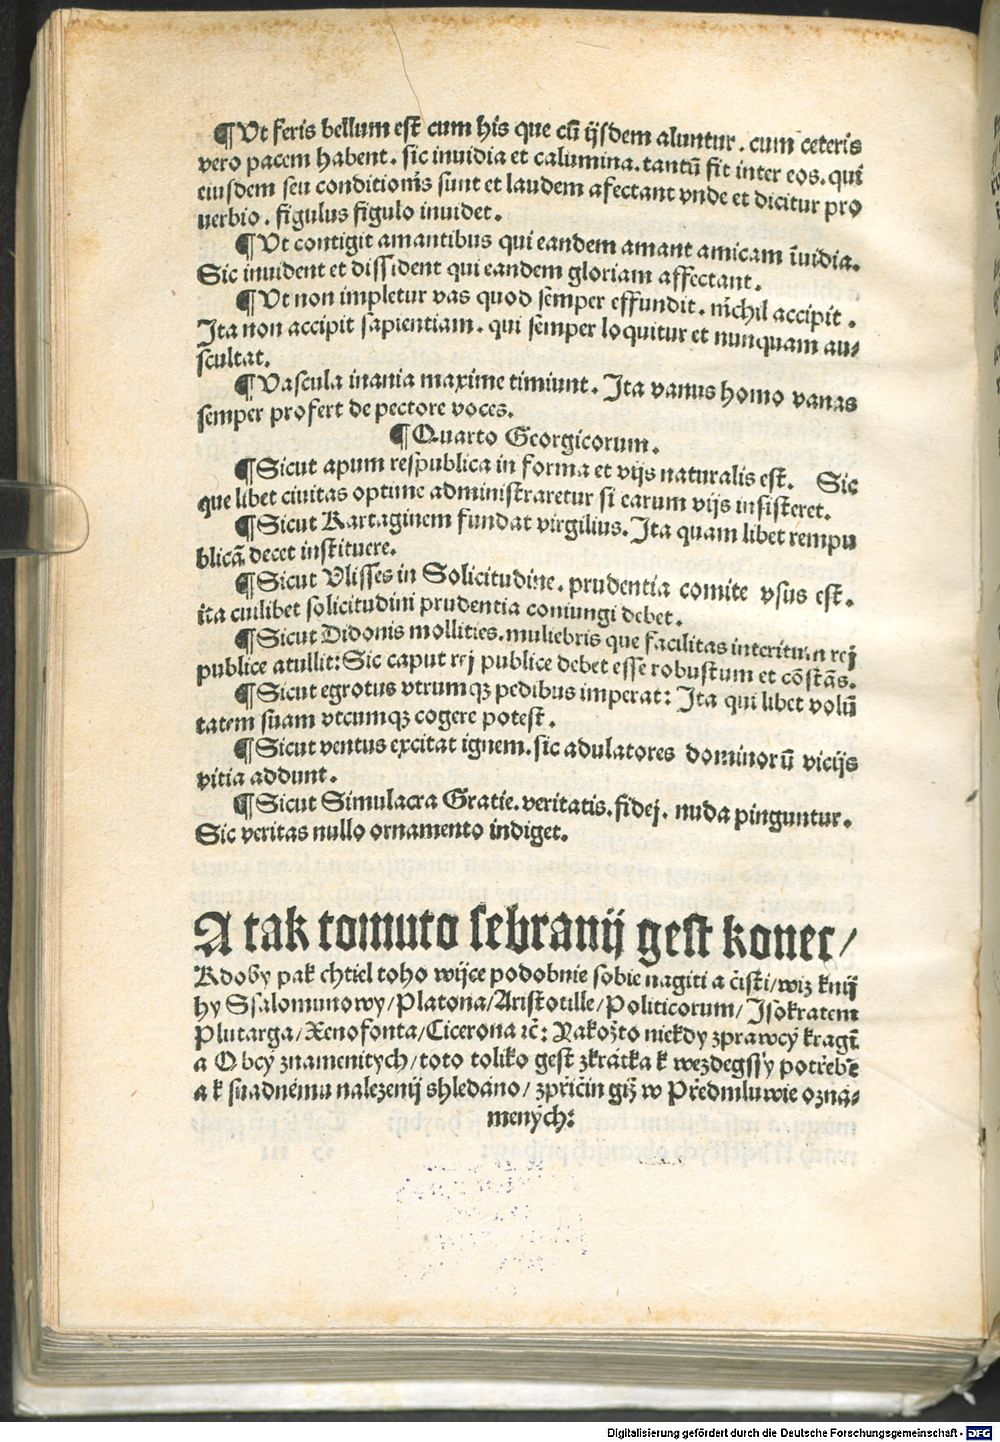 ¶Vt feris bellum est cum his que cū ijsdem aluntur. cum ceteris
vero pacem habent. sic inuidia et calumina. tantū fit inter eos. qui
eiusdem seu conditionis sunt et laudem afectant vnde et dicitur pro
uerbio. figulus figulo inuidet.
¶Vt contigit amantibus qui eandem amant amicam īuidia.
Sic inuident et dissident qui eandem gloriam affectant.
¶Vt non impletur vas quod semper effundit. nichil accipit.
Ita non accipit sapientiam. qui semper loquitur et nunquam au⸗
scultat.
¶Vascula inania maxime timiunt. Ita vanus homo vanas
semper profert de pectore voces.
¶Quarto Georgicorum.
¶Sicut apum respublica in forma et vijs naturalis est. Sic
que libet ciuitas optime administraretur si earum vijs insisteret.
¶Sicut Kartaginem fundat virgilius. Ita quam libet rempu
blicā decet instituere.
¶Sicut Vlisses in Solicitudine. prudentia comite vsus est.
ita cuilibet solicitudini prudentia coniungi debet.
¶Sicut Didonis mollities. muliebris que facilitas interitum rej
publice atullit: Sic caput rej publice debet esse robustum et cōstās.
¶Sicut egrotus vtrumqꝫ pedibus imperat: Ita qui libet volū
tatem suam vtcumqꝫ cogere potest.
¶Sicut ventus excitat ignem. sic adulatores dominorū vicijs
vitia addunt.
¶Sicut Simulacra Gratie. veritatis. fidej. nuda pinguntur.
Sic veritas nullo ornamento indiget.
A tak tomuto sebranij gest konec/
Kdoby pak chtiel toho wijce podobnie sobie nagiti a čisti/ wiz knij
hy Ssalomunowy/ Platona/ Aristotille/ Politicorum/ Isokratem
Plutarga/ Xenofonta/ Cicerona ⁊č: Yakožto niekdy zprawcý kragū
a Obcý znamenitych/ toto toliko gest zkrátka k wezdegssý potřebě
a k snadnému nalezenij shledáno/ z přičin giž w Předmluwie ozná⸗
mených:
Digitalisierung gefördert durch die Deutsche Forschungsgemeinschaft - DFG